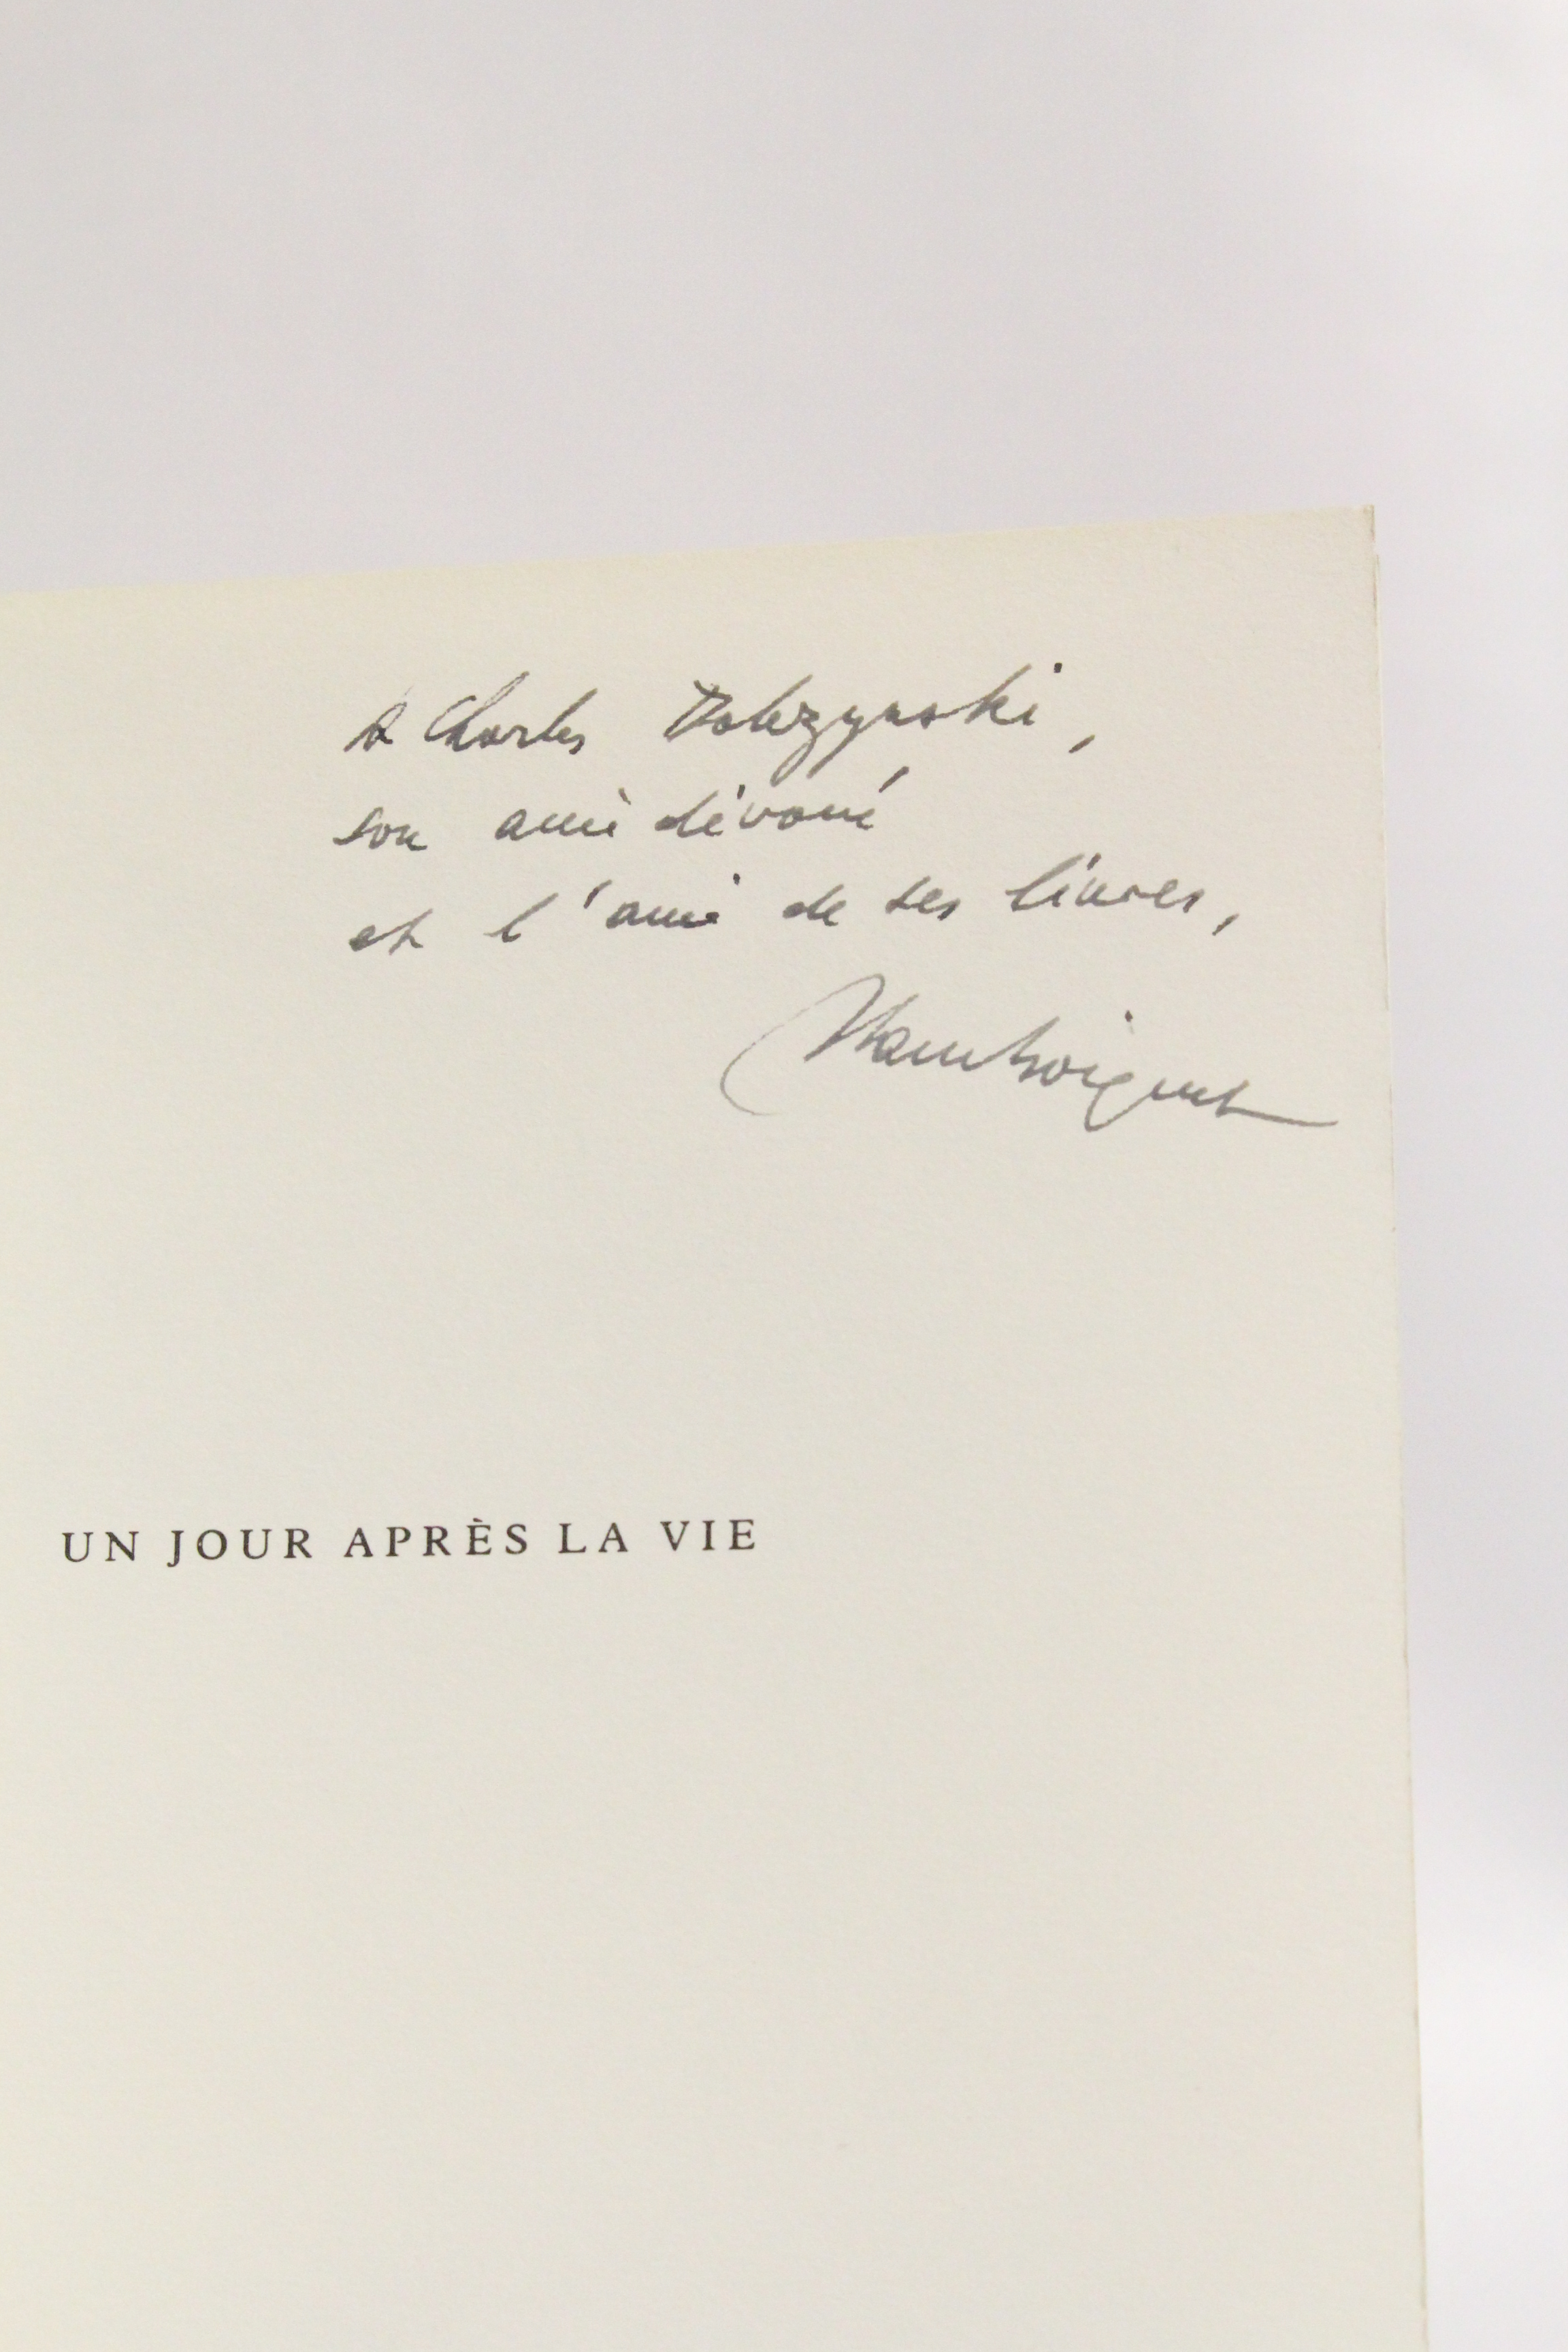 A Charles Dobzynski,
son ami dévoué
et l'ami de ses livres,
UN JOUR APRÈS LA VIE